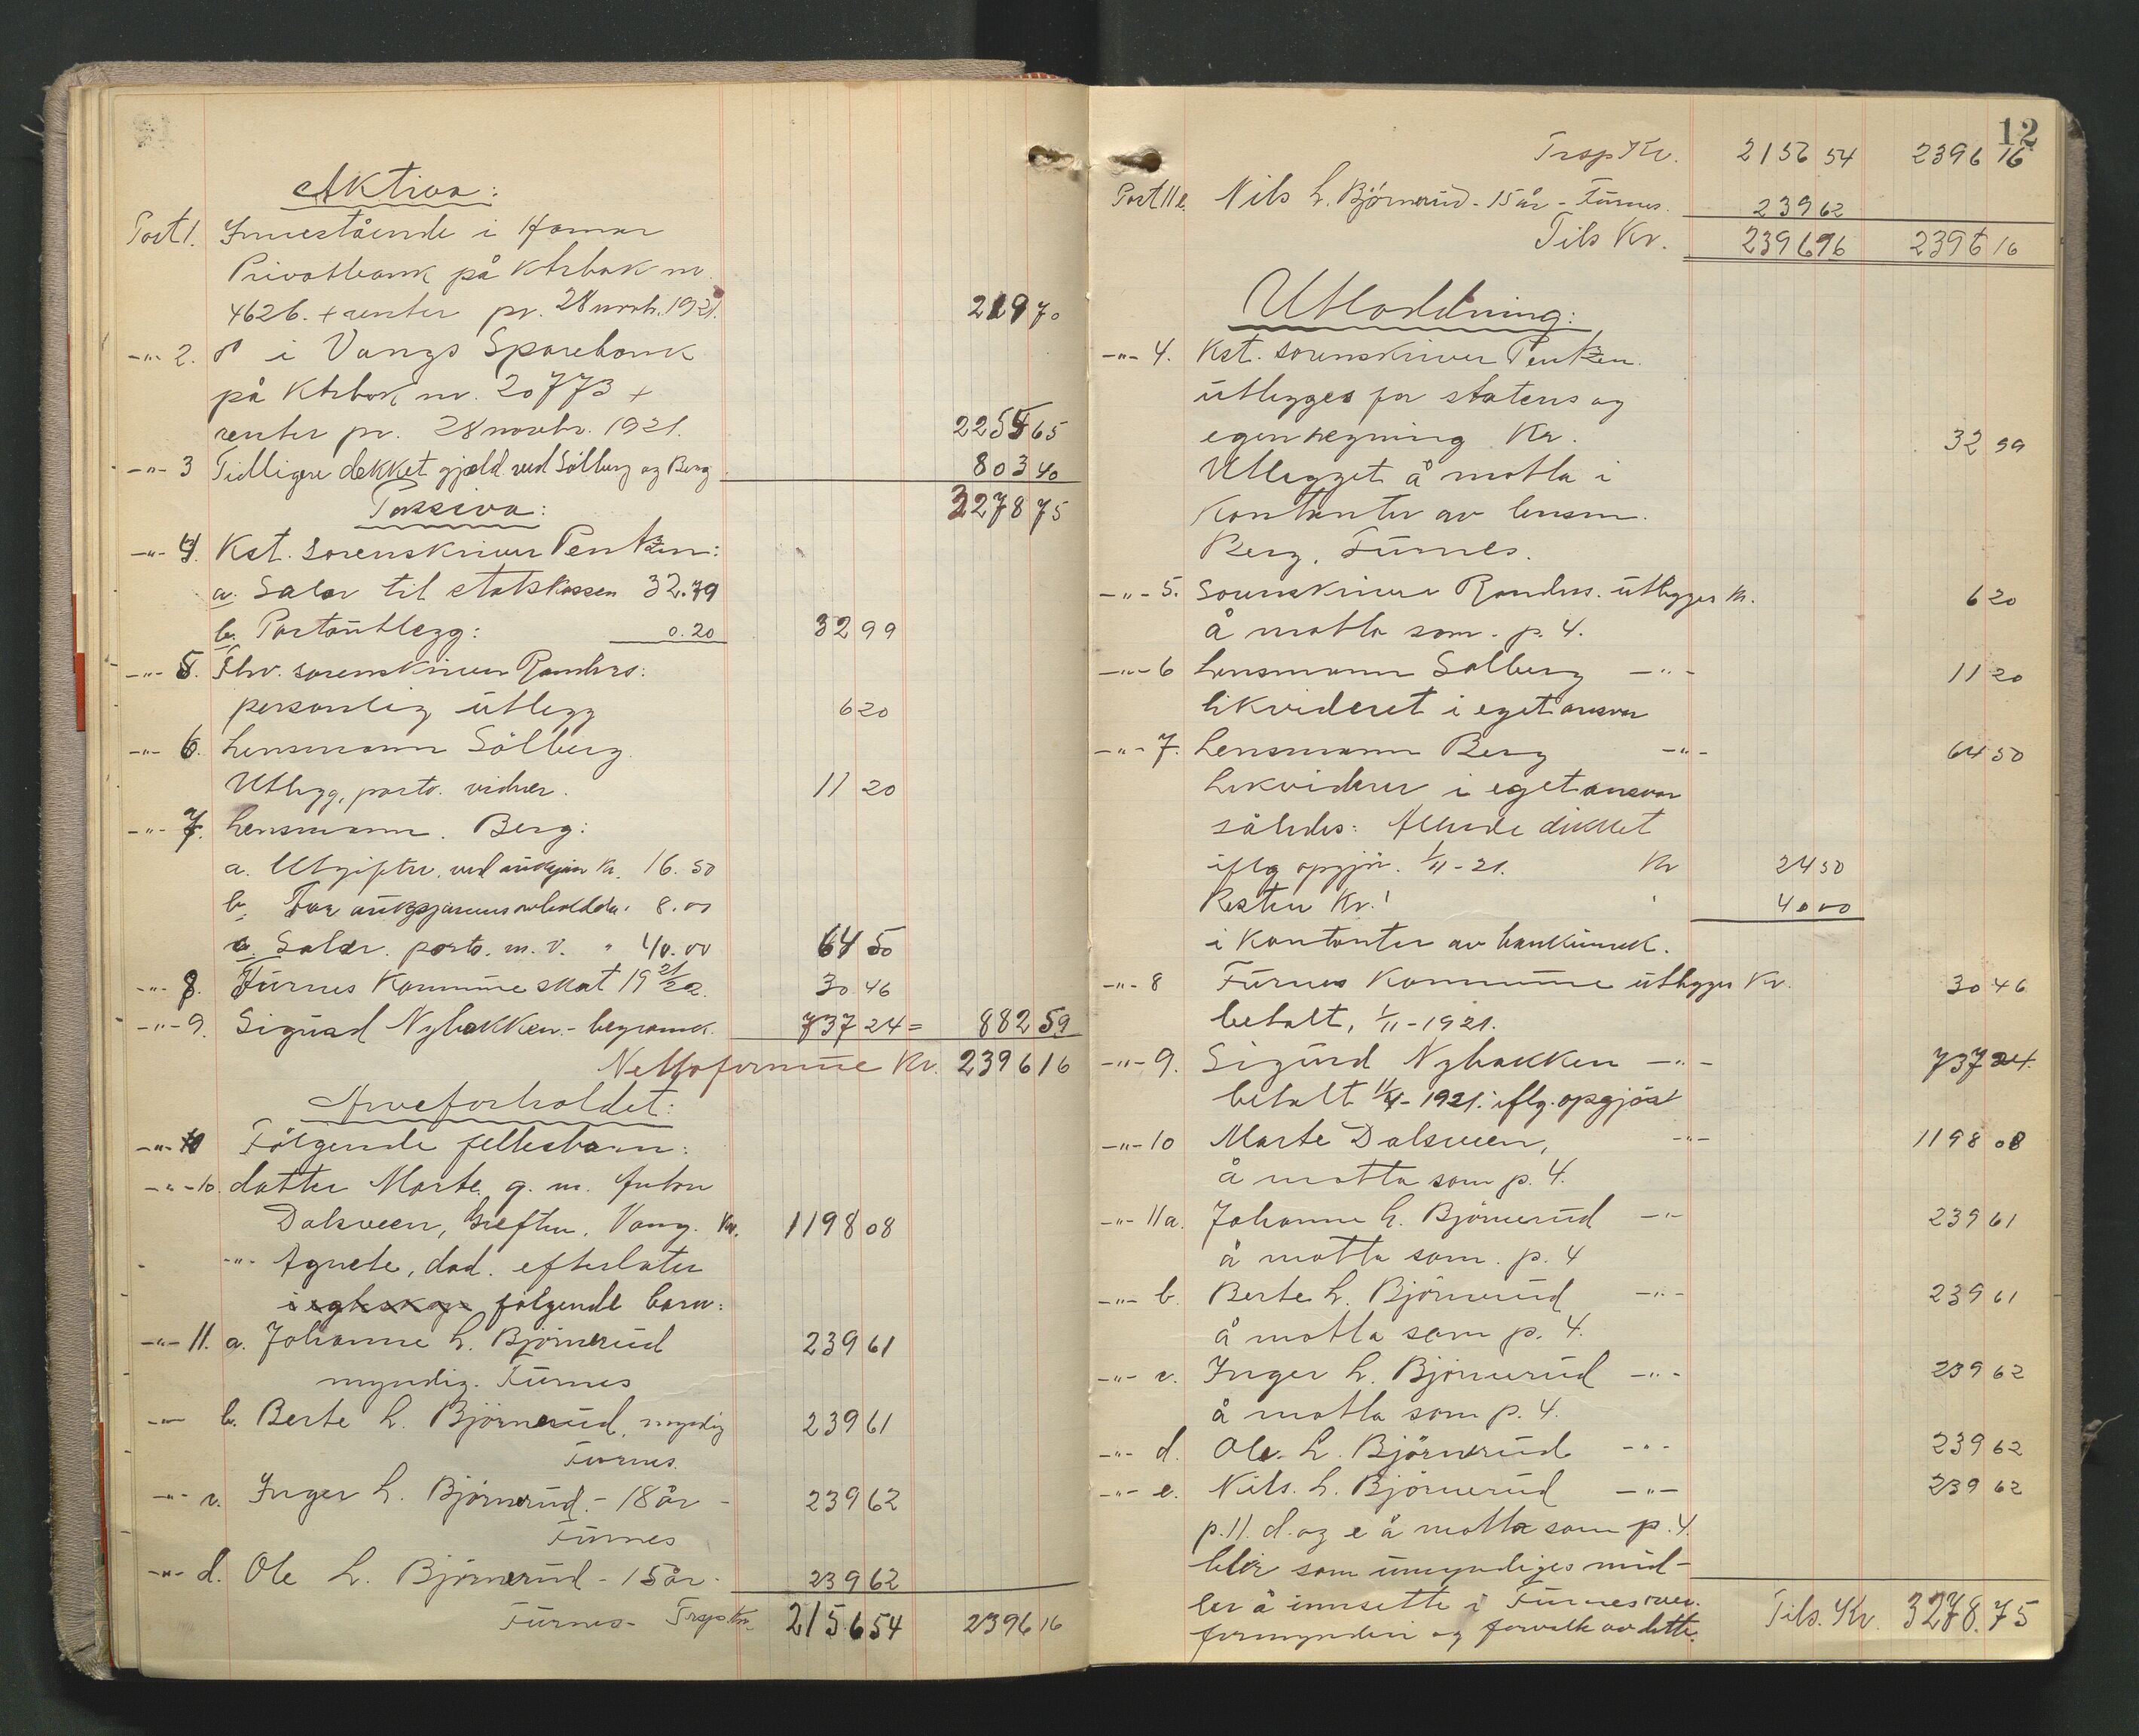 Aktiva:
Post 1. Innestående i Hamar
Privatbank på ktrbok nr.
4626. + renter pr. 28 novbr. 1921. 219 70
-"- 2. do i Vangs Sparebank
på Ktrbok nr. 20773 +
renter pr. 28 novbr. 1921. 2255 65
-"- 3 Tidligere dekket gjeld ved Sölberg og Berg 803 40
Passiva: 3278 75
-"- 4. Kst. sorenskriver Pentzen:
a. Salær til statskassen 32.79
b. Portoutlegg: 0.20 32 99
-"- 5. Fhv. sorenskriver Randers:
personlig utlegg 6 20
-"- 6. Lensmann Sölberg.
Utlegg, porto. vidner. 11 20
-"- 7. Lensmann. Berg:
a. Utgifter, ved auksjon Kr. 16.50
b. For auksjonens avholdelse 8.00
c. Salær. porto. m. v. " 40.00 64 50
-"- 8. Furnes Kommune skat 19 21/22. 30 46
-"- 9. Sigurd Nybakken - begravelse. 737 24 = 882 59
Nettoformue Kr. 2396 16
Arveforholdet:
-"- 10 Fölgende fellesbarn:
-"- 10. datter Marte g. m. Anton
Dalsveen, Greften, Vang. Kr. 1198 08
-"- Agnete, död. efterlater
fölgende barn:
-"- 11. a. Johanne L. Björnerud 239 61
myndig. Furnes
-"- b. Berte L. Björnerud, myndig 239 61
Furnes.
-"- c. Inger L. Björnerud. - 18 år - 239 62
Furnes
-"- d. Ole L. Björnerud - 15 år - 239 62
Furnes - Trsp Kr. 2156 54 2396 16
12
Trsp Kr. 2156 54 2396 16
Post 11 e. Nils L. Björnerud - 15 år - Furnes. 239 62
Tils Kr. 2396 16 2396 16
Utloddning:
-"- 4. Kst. sorenskriver Pentzen.
utlegges for statens og
egen regning Kr. 32 99
Utlegget å motta i
Kontanter av lensm.
Berg, Furnes.
-"- 5. Sorenskriver Randers. utlegges Kr. 6 20
å motta som. p. 4.
-"- 6 Lensmann Solberg -"- 11 20
likvideret i eget ansvar
-"- 7. Lensmann Berg -"- 64 50
Likviderer i eget ansvar
således: Allerede dekket
iflg opgjör. 1/11 - 21. Kr 24 50
Resten Kr. 40 00
i Kontanter av
-"- 8 Furnes Kommune utlegges Kr. 30 46
betalt, 1/11 - 1921.
-"- 9. Sigurd Nybakken -"- 737 24.
betalt 1921. iflg. opgjör
-"- 10 Marte Dalsveen, -"- 1198 08
å motta som p. 4.
-"- 11 a. Johanne L. Björnerud -"- 239 61
å motta som. p. 4
-"- b. Berte L. Björnerud -"- 239 61
å motta som p. 4.
-"- c. Inger L. Björnerud -"- 239 62
å motta som p. 4.
-"- d. Ole. L. Björnerud -"- 239 62
-"- e. Nils. L. Björnerud -"- 239 62
p. 11. d. og e å motta som p. 4.
blir som umyndiges mid-
ler å innsette i Furnes over-
formynderi og forvalte av dette. Tils. Kr. 3278.75